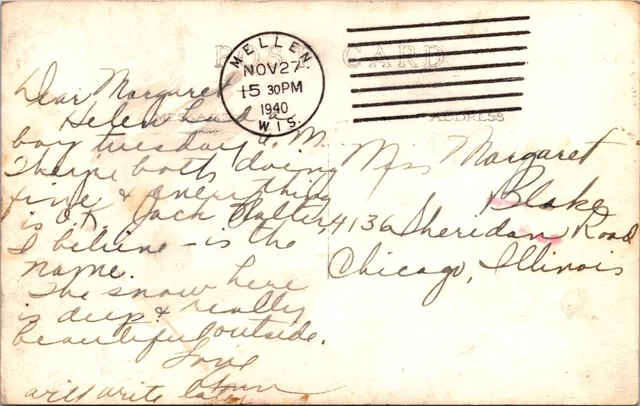 POST CARD
MELLEN
NOV 27
15 30PM
1940
WIS.
ADDRESS
Dear Margaret
Helen had a
boy tuesday a.m.
Theyre both doing
fine & everything
is O.K. Jack
I believe - is the
name.
The snow here
is deep & really
beautiful outside.
Love
will write later
Miss Margaret
Blake
4136 Sheridan Road
Chicago, Illinois